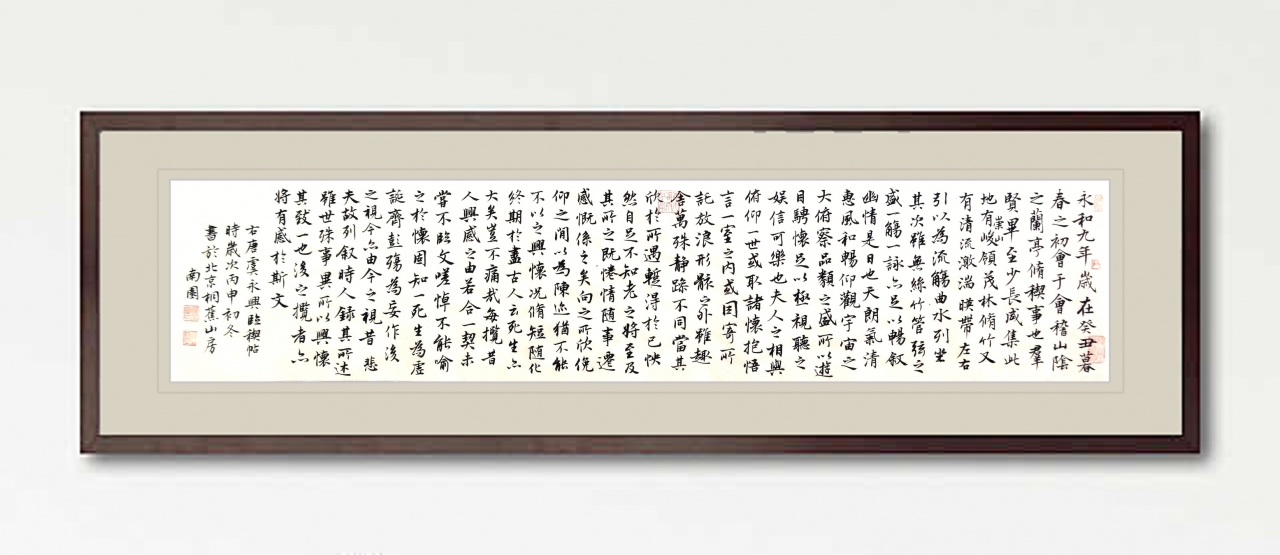 永和九年歲在癸丑暮
春之初會于會稽山陰
之蘭亭脩稧事也羣
賢畢至少長咸集此
地有崇山峻領茂林脩竹又
有清流激湍暎帶左右
引以為流觴曲水列坐
其次雖無絲竹管弦之
盛一觴一詠亦足以暢叙
幽情是日也天朗氣清
惠風和暢仰觀宇宙之
大俯察品類之盛所以遊
目騁懷足以極視聽之
娛信可樂也夫人之相與
俯仰一世或取諸懷抱悟
言一室之內或因寄所
託放浪形骸之外雖趣
舍萬殊静躁不同當其
欣於所遇暫得於己怏
然自足不知老之將至及
其所之既惓情隨事遷
感慨係之矣向之所欣俛
仰之間以為陳迹猶不能
不以之興懷况脩短隨化
終期於盡古人云死生亦
大矣豈不痛哉每攬昔
人興感之由若合一契未
嘗不臨文嗟悼不能喻
之於懷固知一死生為虛
誕齊彭殤為妄作後
之視今亦由今之視昔悲
夫故列叙時人錄其所述
雖世殊事異所以興懷
其致一也後之攬者亦
將有感於斯文
右唐虞永興臨稧帖
時歲次丙申初冬
書於北京桐蕉山房
南園